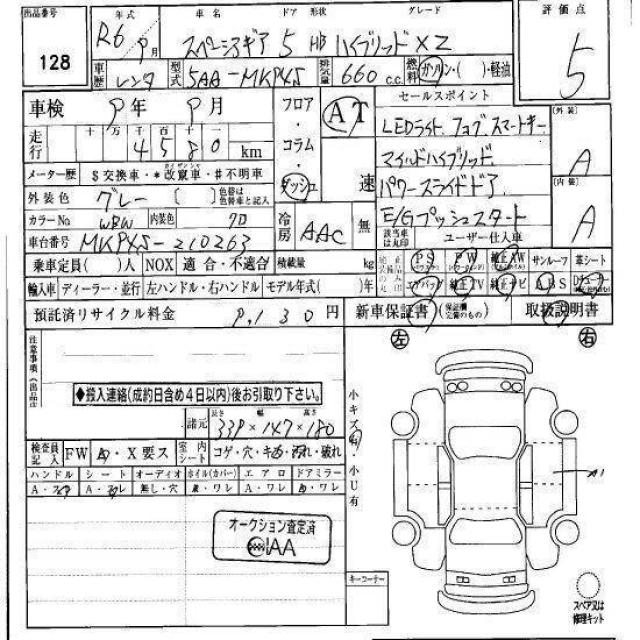 出品番号 年式 車名 ドア 形状 グレード 評価点
128 R6 9月 スペーシアギア 5 HB ハイブリッドXZ 5
車歴 レンタ 型式 5AA-MK94S 排気量 660 c.c. 燃料 ガソリン・( )・軽油
車検 9年 9月 フロア・コラム・ダッシュ AT 速 セールスポイント
走行 十 万 千 百 十 4580 km LEDライト フォグ スマートキー 【外装】 A
マイルドハイブリッド
メーター歴 $交換車・*改竄車・#不明車 パワースライドドア 【内装】 A
外装色 グレー ( ) 色替は色替車と記入 E/Gプッシュスタート
カラーNo 内装色 クロ 冷房 AAC 無 該当車は丸印 ユーザー仕入車
車台番号 -210263
乗車定員( )人 NOX 適合・不適合 積載量 kg PS PW 純正AW サンルーフ 革シート
輸入車 ディーラー・並行 左ハンドル・右ハンドル モデル年式( )年 エアバッグ 純正TV 純正ナビ ABS
預託済リサイクル料金 円 新車保証書 取扱説明書
左 右
注意事項
◆搬入連絡(成約日含め4日以内)後お引取り下さい。
諸元 長さ 339× 幅 147× 高さ 180
小キズ 小U有
検査員記入 FW A・X要ス 室内シート コゲ・穴・キ・汚れ・破れ
ハンドル シート オーディオ ホイル(カバー) エアロ ドアミラー
無し・穴
A1
オークション査定済
IAA
キーコーナー
スペア又は
修理キット